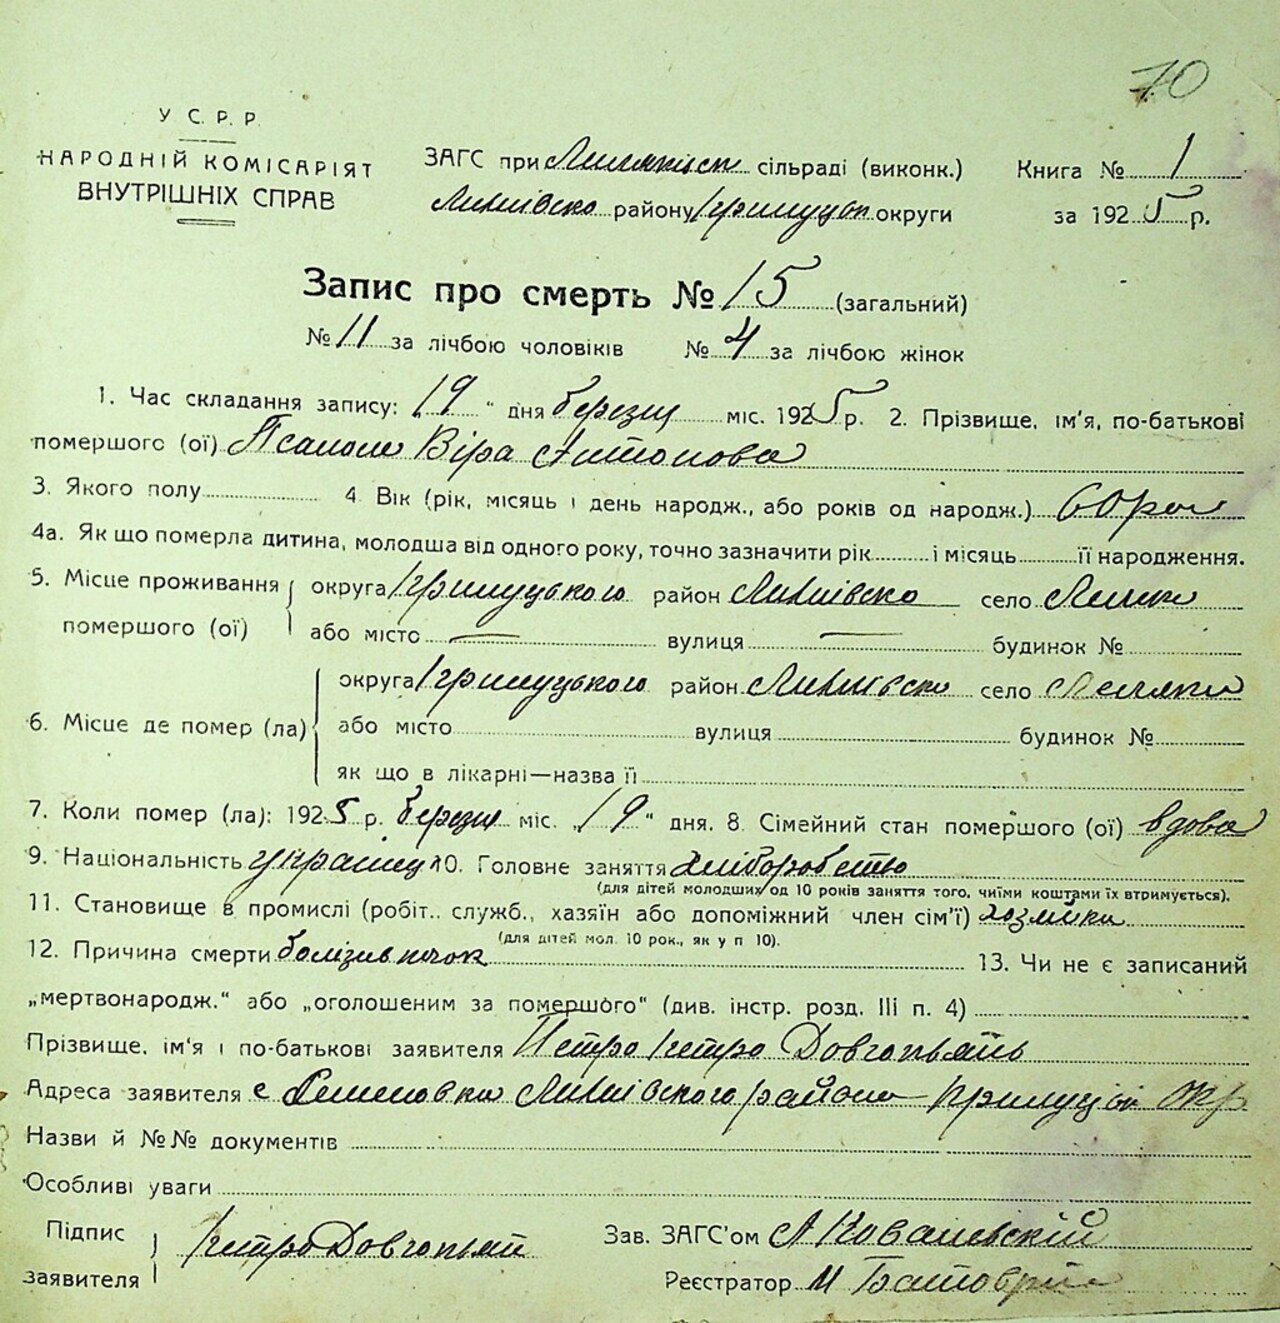 70
У С. Р. Р.
НАРОДНІЙ КОМІСАРІЯТ
ВНУТРІШНІХ СПРАВ
ЗАГС при сільраді (виконк.)
району Прилуцьк округи
Книга № 1
за 1925 р.
Запис про смерть № 15 (загальний)
№ 11 за лічбою чоловіків № 4 за лічбою жінок
1. Час складання запису: „19" дня березня міс. 1925 р. 2. Прізвище, ім'я, по-батькові
помершого (ої) Віра Антонова
3. Якого полу 4. Вік (рік, місяць і день народж., або років од народж.) 60
4а. Як що померла дитина, молодша від одного року, точно зазначити рік і місяць її народження.
5. Місце проживання помершого (ої) округа Прилуцького район село
або місто — вулиця — будинок №
6. Місце де помер (ла) округа Прилуцького район село
або місто вулиця будинок №
як що в лікарні—назва її
7. Коли помер (ла): 1925 р. березня міс. „19" дня. 8. Сімейний стан помершого (ої) вдова
9. Національність 10. Головне заняття хліборобство
(для дітей молодших од 10 років заняття того, чиїми коштами їх втримується).
11. Становище в промислі (робіт.. служб., хазяїн або допоміжний член сім'ї)
(для дітей мол. 10 рок., як у п 10).
12. Причина смерти 13. Чи не є записаний
„мертвонародж." або „оголошеним за помершого" (див. інстр. розд. III п. 4)
Прізвище, ім'я і по-батькові заявителя Петро Петро
Адреса заявителя с района Прилуцкой окр
Назви й №№ документів
Особливі уваги
Підпис заявителя Петро
Зав. ЗАГС'ом А Ковалевский
Реєстратор М